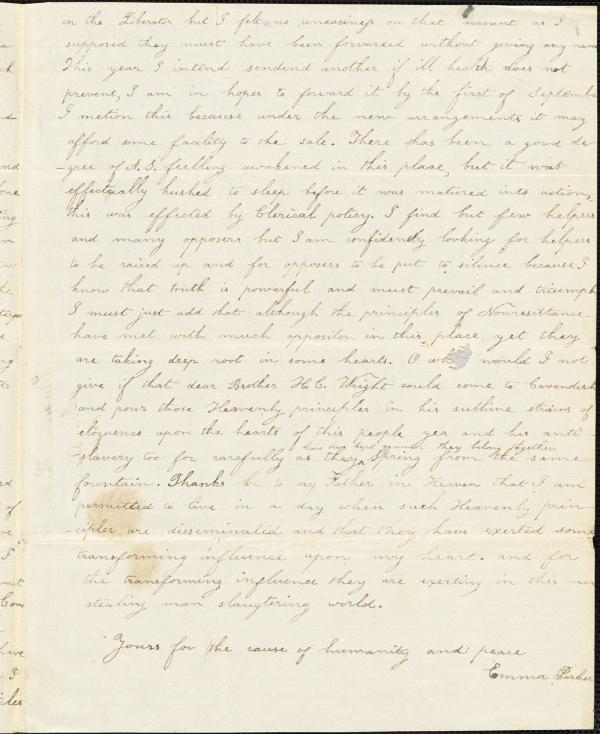 in the Liberator but I felt no uneasiness on that account as I
supposed they must have been forwarded without giving any name
This year I intend sendind another if ill health does not
prevent, I am in hopes to forward it by the first of September
I metion this because under the new arrangements it may
afford some facility to the sale. There has been a good de
-gree of A.S. feelling awakened in this place, but it was
effectually hushed to sleep before it was matured into action,
this was effected by Clerical policy. I find but few helpers
and many opposers but I am confidently looking for helpers
to be raised up and for opposers to be put to silence because I
know that truth is powerful and must prevail and triumph
I must just add that although the principles of Nonresistance
have met with much oppositon in this place yet they
are taking deep root in some hearts. O would I not
give if that dear Brother H.C. Wright could come to Cavendish
and pour those Heavenly principles in his sublime strains of
eloquence upon the hearts of this people yea and his anti
they belong together
-slavery too for carefully as they spring from the same
fountain. Thanks be to my Father in Heaven that I am
permitted to live in a day when such Heavenly prin
-ciples are disseminated and that they have exerted some
transforming influence upon my heart. and for
the transforming influence they are exerting in this man
stealing man slaugtering world.
Yours for the cause of humanity and peace
Emma Parker